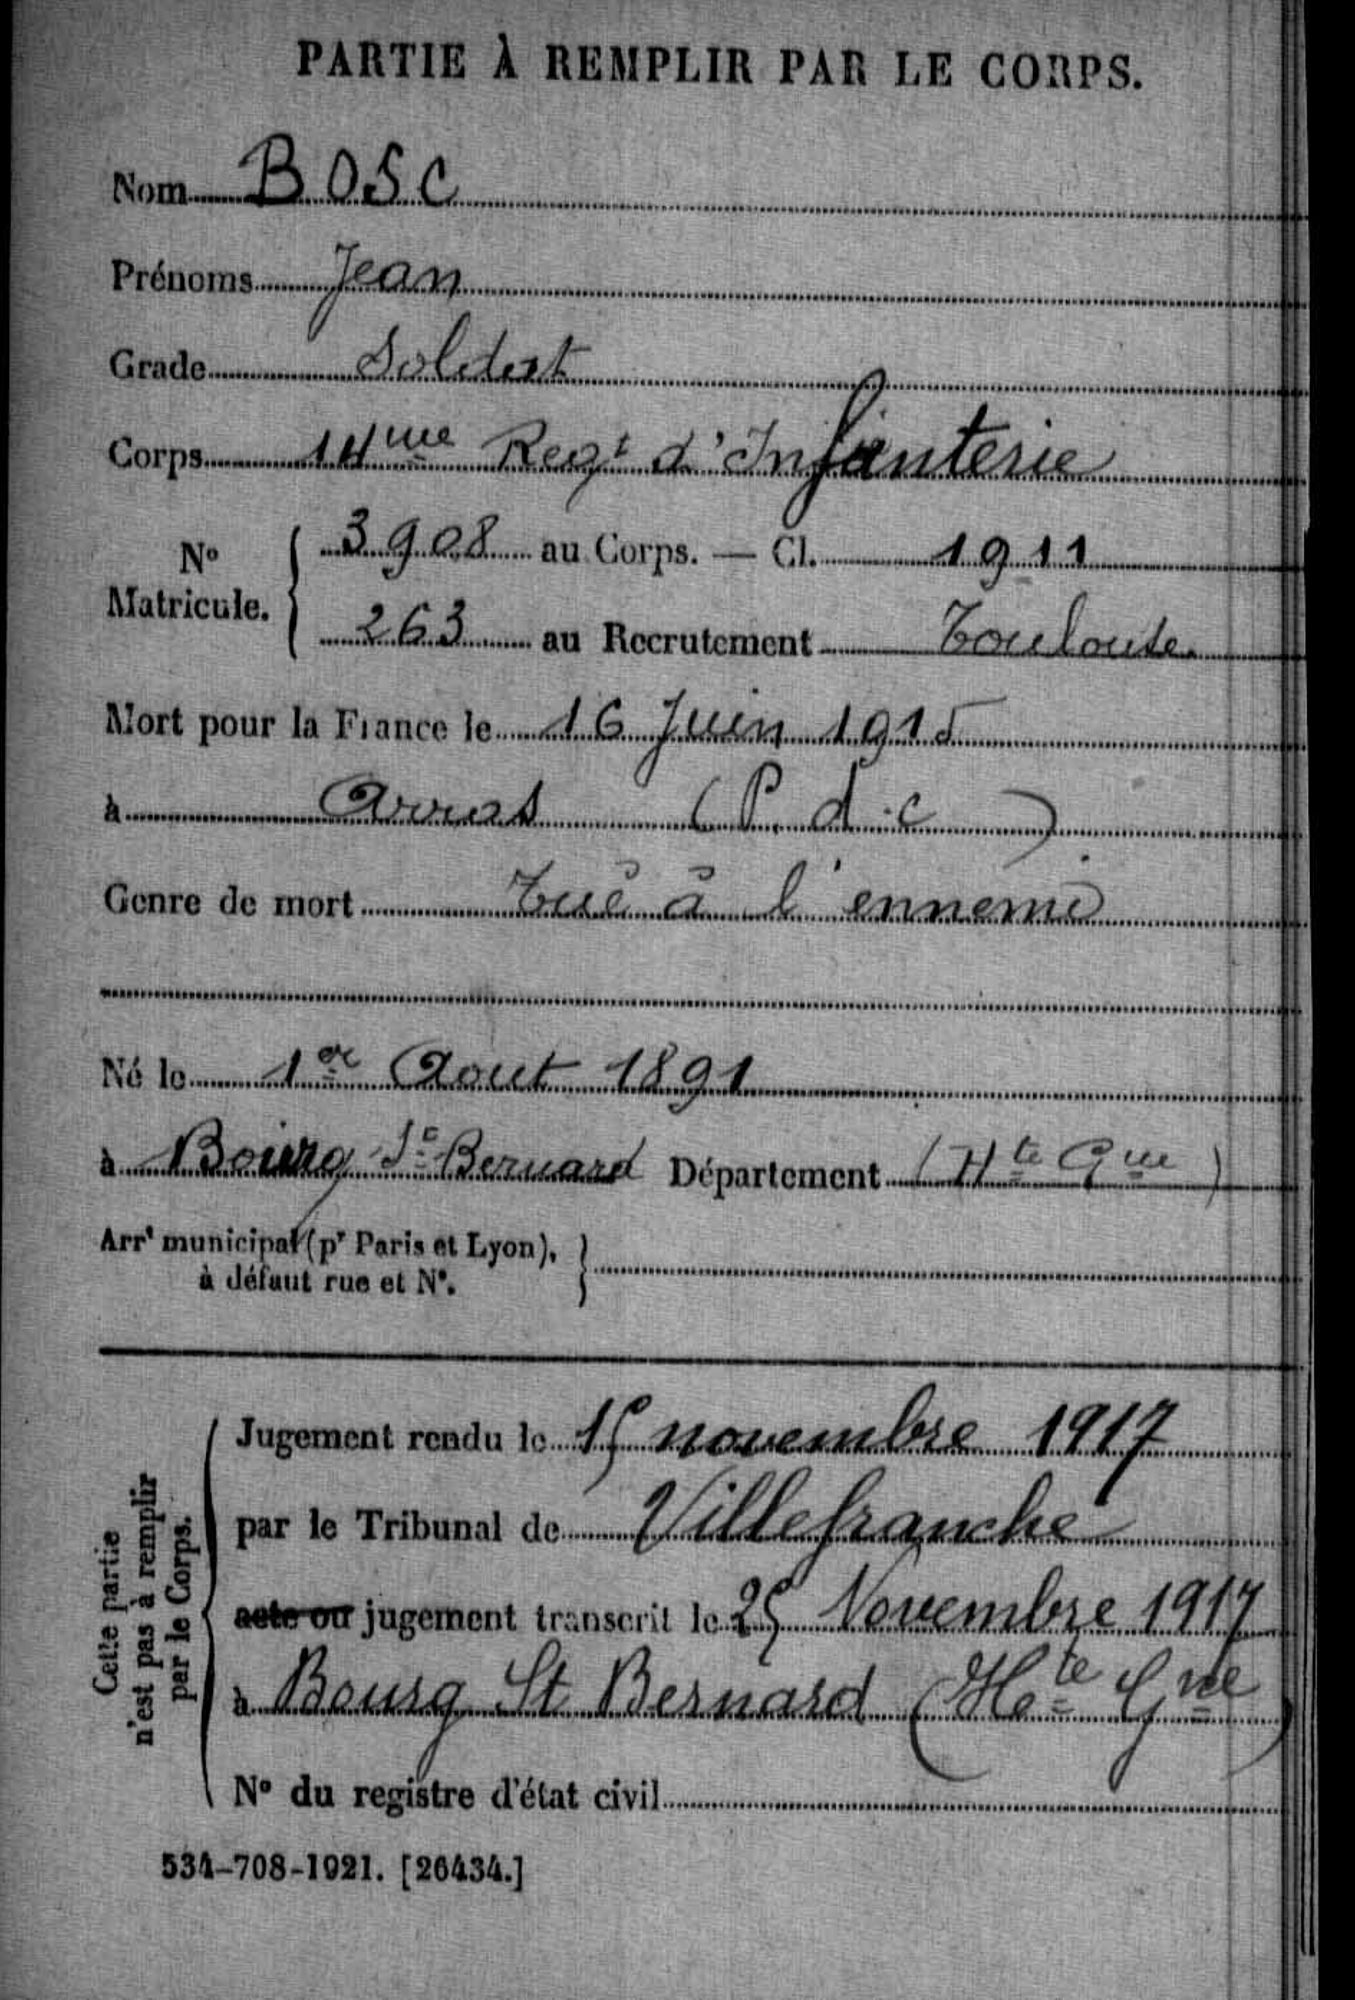 PARTIE À REMPLIR PAR LE CORPS.
Nom BOSC
Prénoms Jean
Grade Soldat
Corps 14me Regt d'Infanterie
No Matricule. { 3908 au Corps. — Cl. 1911
263 au Recrutement Toulouse.
Mort pour la France le 16 Juin 1915
à Arras (P. d. c)
Genre de mort Tué à l'ennemi
Né le 1er Aout 1891
à Bourg St Bernard Département (Hte Gne)
Arrt municipal (pr Paris et Lyon),
à défaut rue et No.
Cette partie
n'est pas à remplir
par le Corps.
Jugement rendu le 15 novembre 1917
par le Tribunal de Villefranche
acte ou jugement transcrit le 25 Novembre 1917
à Bourg St Bernard (Hte Gne)
No du registre d'état civil
534-708-1921. [26434.]